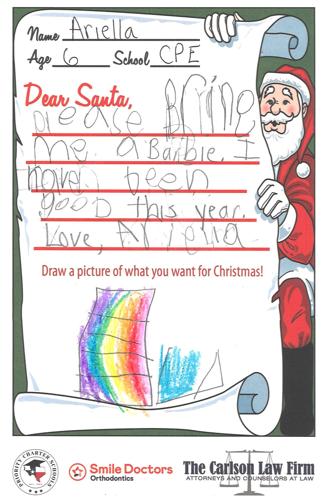 Name Ariella
Age 6 School CPE
Dear Santa,
please Bring
me a Barbie. I
haven been
good this year.
Love, Ariella
Draw a picture of what you want for Christmas!
PRIORITY CHARTER SCHOOLS
Smile Doctors
Orthodontics
The Carlson Law Firm
ATTORNEYS AND COUNSELORS AT LAW